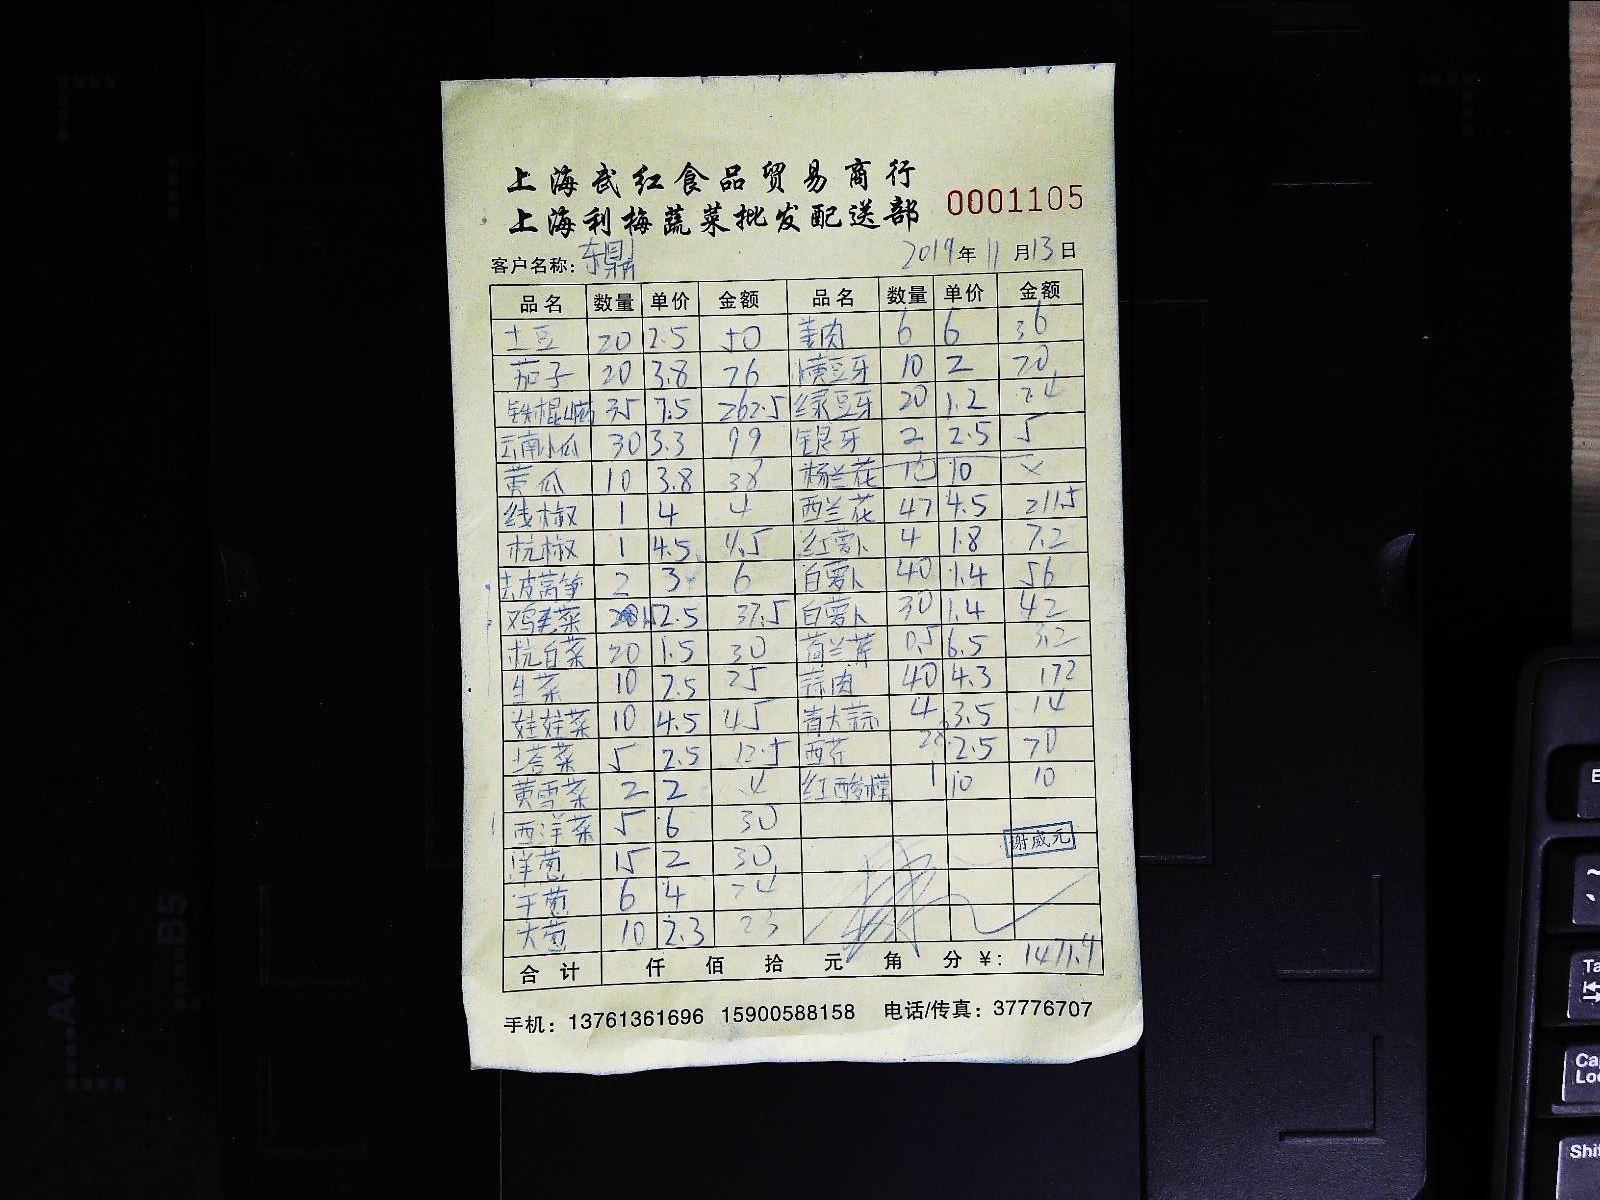 上海武红食品贸易商行
上海利梅蔬菜批发配送部 0001105
客户名称：东鼎 2019年11月13日
品名 数量 单价 金额 品名 数量 单价 金额
土豆 20 2.5 50 姜肉 6 6 36
茄子 20 3.8 76 黄豆牙 10 2 20
铁棍山药 35 7.5 262.5 绿豆牙 20 1.2 24
云南小瓜 30 3.3 99 银牙 2 2.5 5
黄瓜 10 3.8 38 杨兰花 10 10 ×
线椒 1 4 4 西兰花 47 4.5 211.5
杭椒 1 4.5 4.5 红萝卜 4 1.8 7.2
去皮莴笋 2 3 6 白萝卜 40 1.4 56
鸡毛菜 15 2.5 37.5 白萝卜 30 1.4 42
杭白菜 20 1.5 30 荷兰芹 0.5 6.5 3.2
生菜 10 2.5 25 蒜肉 40 4.3 172
娃娃菜 10 4.5 45 青大蒜 4 3.5 14
塔菜 5 2.5 12.5 西芹 28 2.5 70
黄雪菜 2 2 4 红酸模 1 10 10
西洋菜 5 6 30
洋葱 15 2 30 谢威元
干葱 6 4 24
大葱 10 2.3 23
合计 仟 佰 拾 元 角 分 ¥: 1471.9
手机：13761361696 15900588158 电话/传真：37776707
A4
B5
Shi